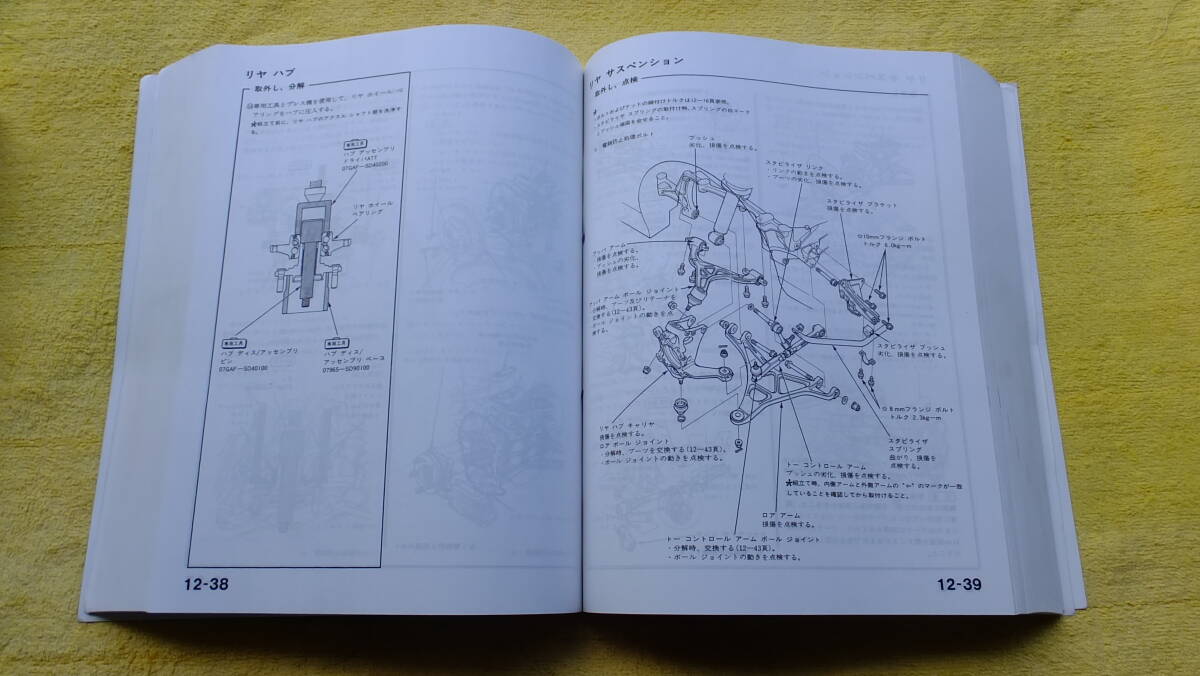 リヤ ハブ
取外し、分解
専用工具とプレス機を使用して、リヤ ホイールベ
アリングをハブに圧入する。
★組立て前に、リヤ ハブのアクスル シャフト部を洗浄す
る。
専用工具
ハブ アッセンブリ
ドライバATT
07GAF-SD40200
リヤ ホイール
ベアリング
専用工具
ハブ ディス/アッセンブリ
ピン
07GAF-SD40100
専用工具
ハブ ディス/
アッセンブリ ベース
07965-SD90100
12-38
リヤ サスペンション
取外し、点検
ブッシュ
劣化、損傷を点検する。
スタビライザ リンク
・リンクの動きを点検する。
・ブーツの劣化、損傷を点検する。
スタビライザ ブラケット
損傷を点検する。
10mmフランジ ボルト
トルク 6.0kg-m
アッパ アーム
・損傷を点検する。
・ブッシュの劣化、
損傷を点検する。
アッパ アーム ボール ジョイント
・分解時、ブーツ及びリテーナを
交換する(12-43頁)。
・ボール ジョイントの動きを点
検する。
スタビライザ ブッシュ
劣化、損傷を点検する。
8mmフランジ ボルト
トルク 2.3kg-m
スタビライザ
スプリング
曲がり、損傷を
点検する。
リヤ ハブ キャリヤ
損傷を点検する。
ロア ボール ジョイント
・分解時、ブーツを交換する(12-43頁)。
・ボール ジョイントの動きを点検する。
トー コントロール アーム
ブッシュの劣化、損傷を点検する。
★組立て時、内側アームと外側アームの"⇦"のマークが一致
していることを確認してから取付けること。
ロア アーム
損傷を点検する。
トー コントロール アーム ボール ジョイント
・分解時、交換する(12-43頁)。
・ボール ジョイントの動きを点検する。
12-39